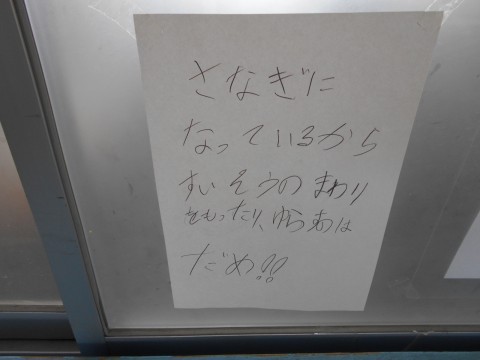 さなぎに
なっているから
すいそうのまわり
をもったり、ゆらすのは
だめ!!